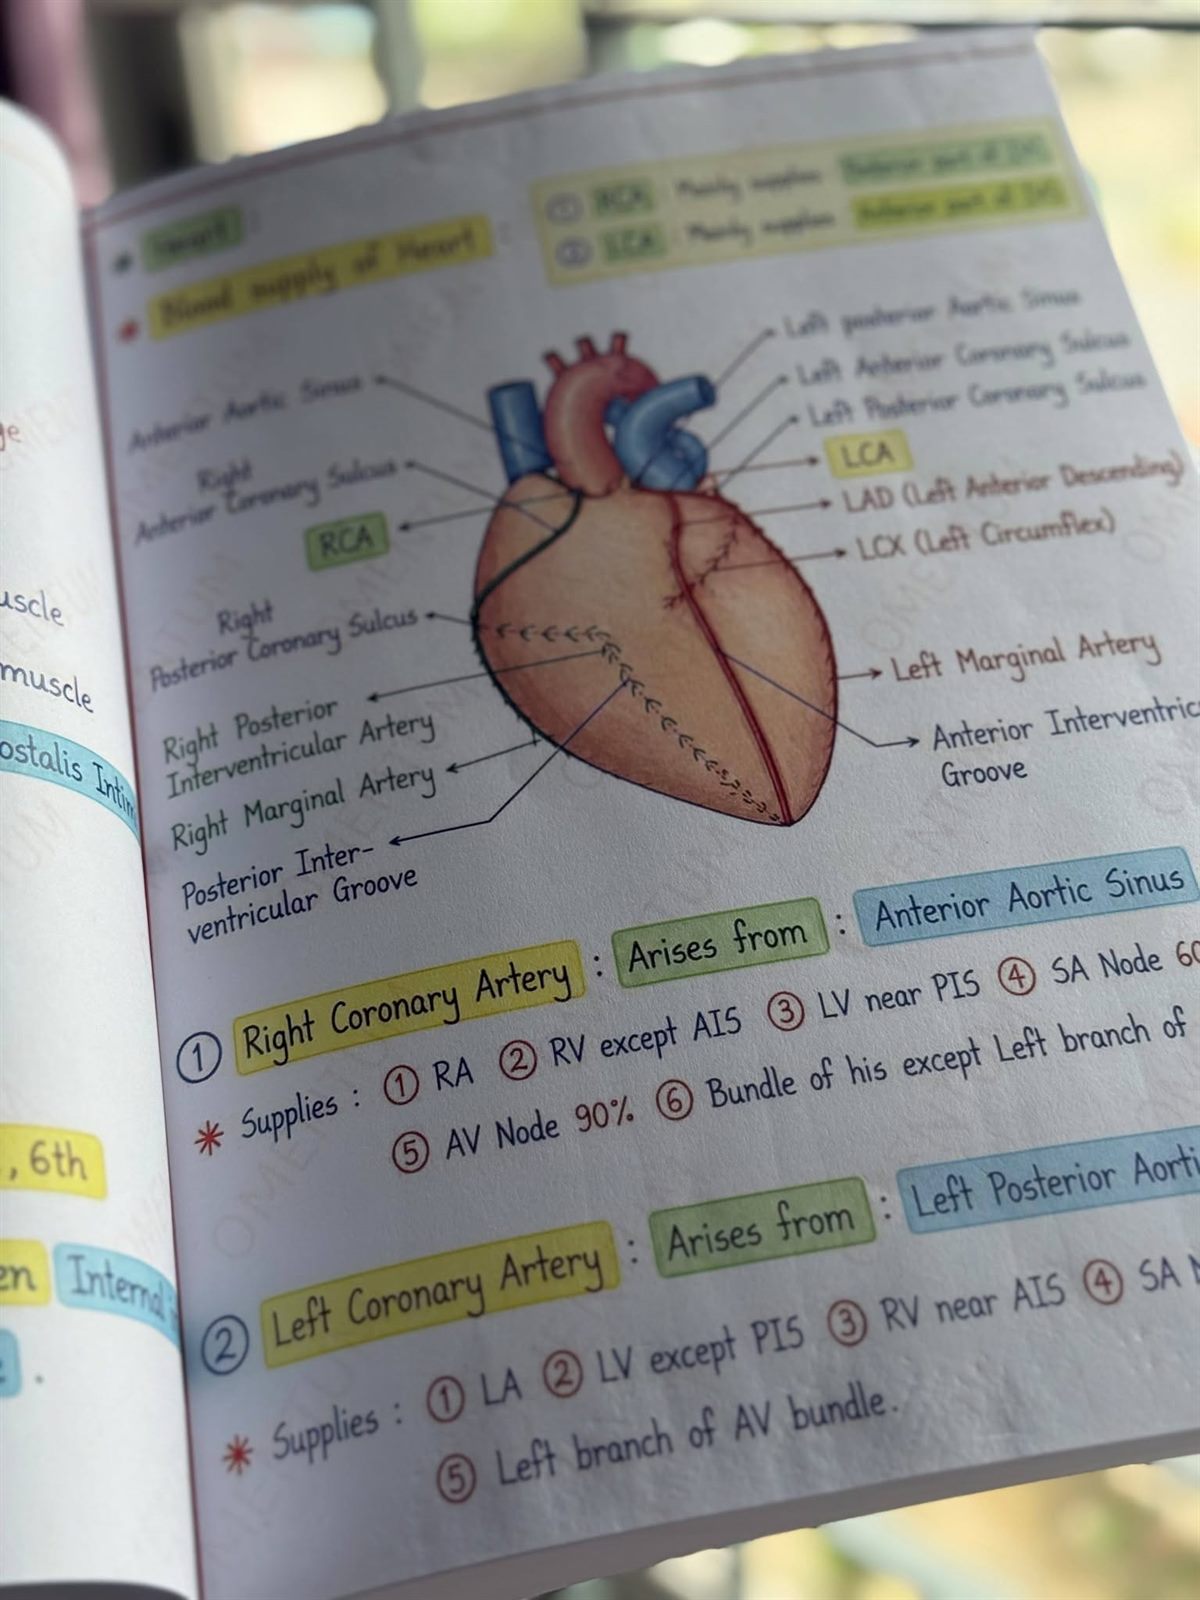 * Heart :
* Blood supply of Heart :
① RCA : Mainly supplies Posterior part of IVS
② LCA : Mainly supplies Anterior part of IVS
Anterior Aortic Sinus
Right
Anterior Coronary Sulcus
RCA
Right
Posterior Coronary Sulcus
Right Posterior
Interventricular Artery
Right Marginal Artery
Posterior Inter-
ventricular Groove
Left posterior Aortic Sinus
Left Anterior Coronary Sulcus
Left Posterior Coronary Sulcus
LCA
LAD (Left Anterior Descending)
LCX (Left Circumflex)
Left Marginal Artery
Anterior Interventric
Groove
① Right Coronary Artery : Arises from : Anterior Aortic Sinus
* Supplies : ① RA ② RV except AIS ③ LV near PIS ④ SA Node 60
⑤ AV Node 90% ⑥ Bundle of his except Left branch of
② Left Coronary Artery : Arises from : Left Posterior Aorti
* Supplies : ① LA ② LV except PIS ③ RV near AIS ④ SA N
⑤ Left branch of AV bundle.
uscle
muscle
ostalis Intim
, 6th
en Internal